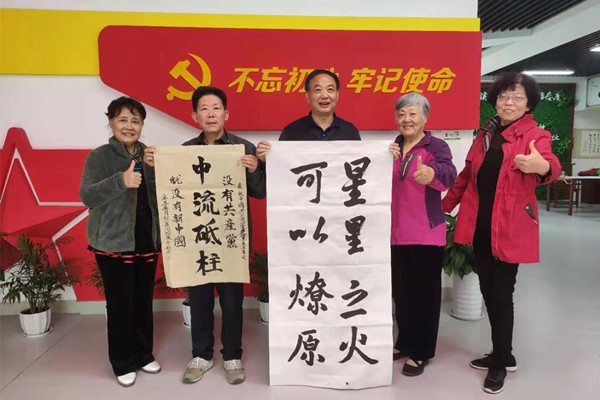 不忘初心 牢记使命
没有共産黨
中流砥柱
就没有新中國
星星之火
可以燎原